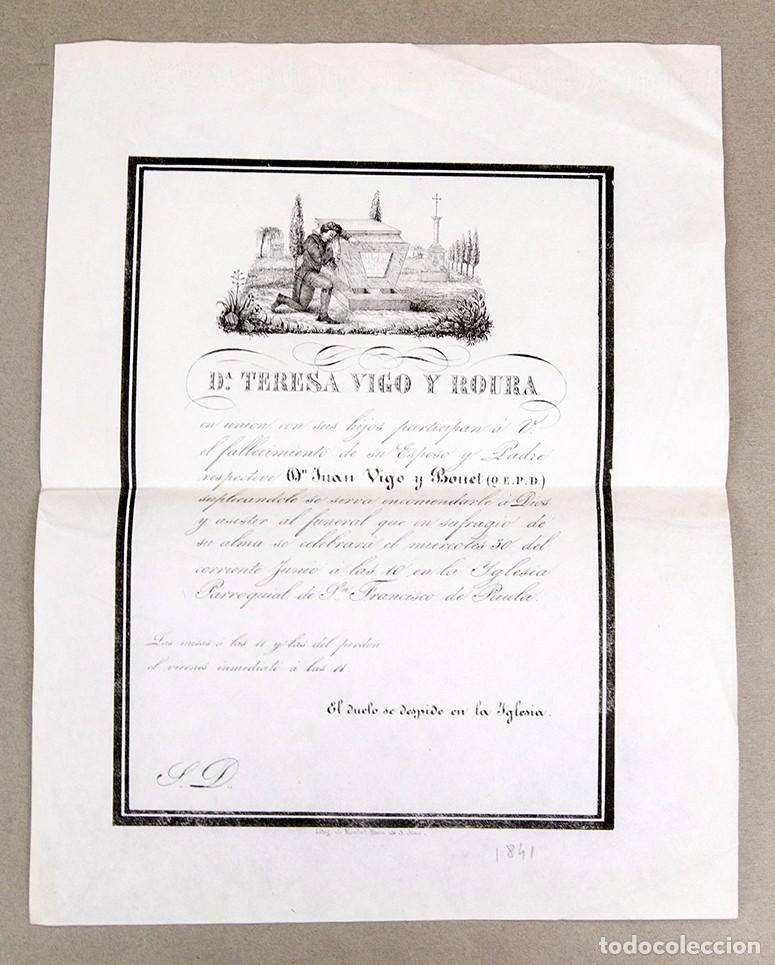 D.ª TERESA VIGO Y ROURA
en union con sus hijos participan á V.
el fallecimiento de su Esposo y Padre
respective D.ⁿ Juan Vigo y Bouet (Q.E.P.D.)
suplicandole se sirva encomendarle á Dios
y asistir al funeral que en sufragio de
su alma se celebrará el miercoles 30 del
corriente Junio á las 10 en la Yglesia
Parroquial de S.ⁿ Francisco de Paula.
Las misas á las 11 y las del perdon
el viernes inmediato á las 11.
El duelo se despide en la Yglesia.
S. D.
1841
todocoleccion